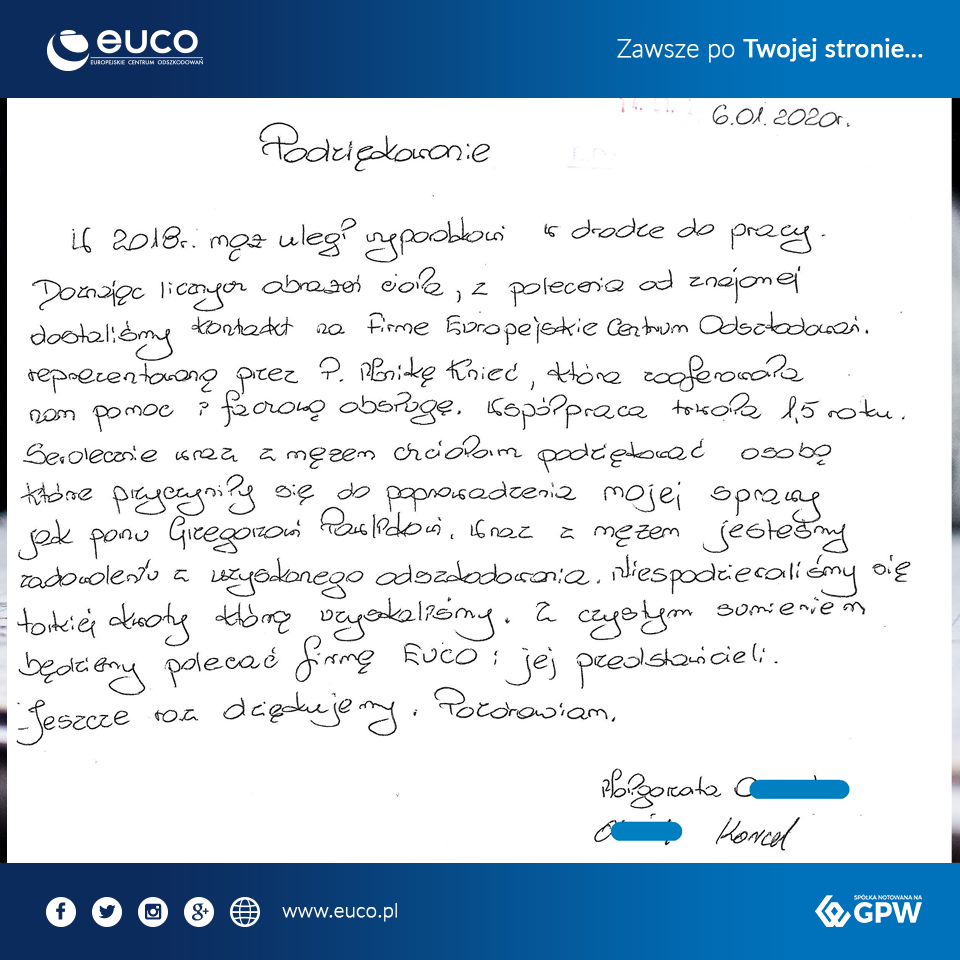 euco
EUROPEJSKIE CENTRUM ODSZKODOWAŃ
Zawsze po Twojej stronie...
6.01.2020r.
Podziękowanie
W 2018r. mąż uległ wypadkowi w drodze do pracy.
Doznając licznych obrażeń ciała, z polecenia od znajomej
dostaliśmy kontakt na firme Europejskie Centrum Odszkodowań.
reprezentowaną przez P. Monikę Knieć, która zaoferowała
nam pomoc i fachową obsługę. Współpraca trwała 1,5 roku.
Serdecznie wraz z mężem chciałam podziękować osobą
które przyczyniły się do poprowadzenia mojej sprawy
jak panu Grzegorzowi. Wraz z mężem jesteśmy
zadowoleni z uzyskanego odszkodowania. Niespodziewaliśmy się
takiej kwoty którą uzyskaliśmy. Z czystym sumieniem
będziemy polecać firmę EUCO i jej przedstawicieli.
Jeszcze raz dziękujemy. Pozdrawiam.
Małgorzata
www.euco.pl
SPÓŁKA NOTOWANA NA
GPW